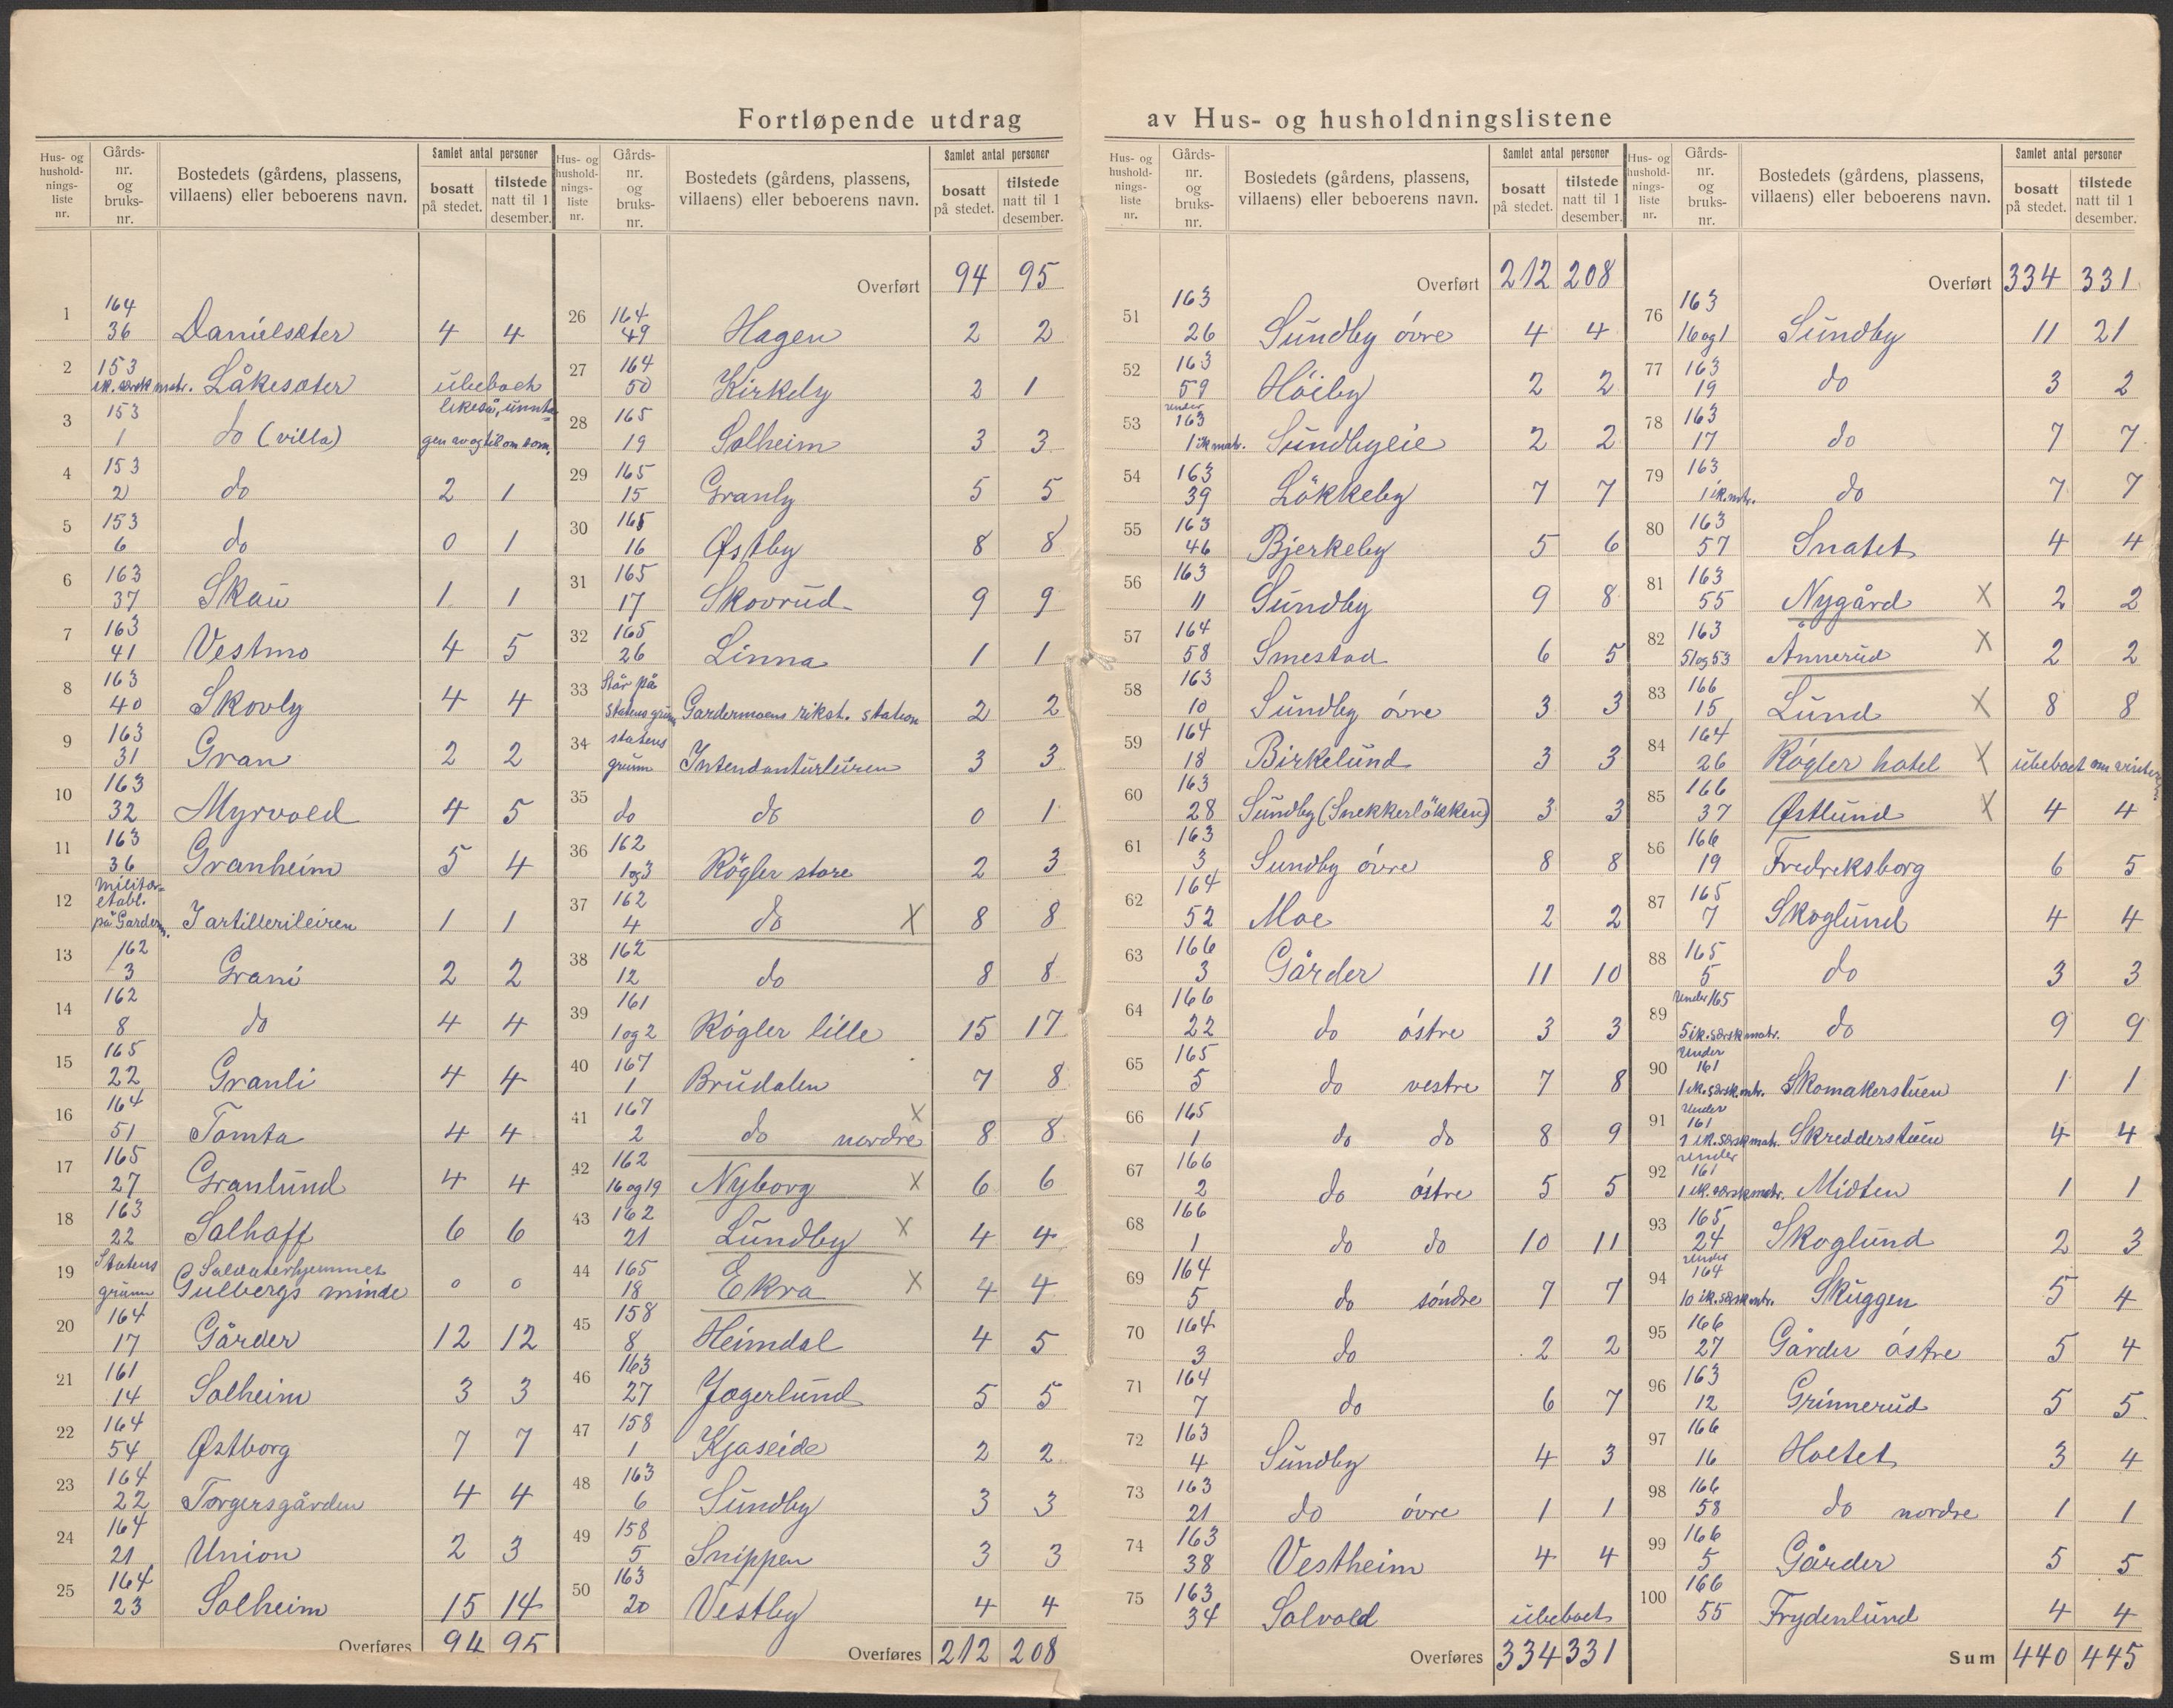 Fortløpende utdrag av Hus- og husholdningslistene
Hus- og hushold- nings- liste nr. | Gårds- nr. og bruks- nr. | Bostedets (gårdens, plassens, villaens) eller beboerens navn. | Samlet antal personer | bosatt på stedet. | tilstede natt til 1 desember.
1 | 164 36 | Danielsæter | 4 | 4
2 | 153 ik. særsk matr. | Låkesæter | ubeboet
3 | 153 1 | do (villa) | likeså, unnta- gen av og til om som.
4 | 153 2 | do | 2 | 1
5 | 153 6 | do | 0 | 1
6 | 163 37 | Skau | 1 | 1
7 | 163 41 | Vestmo | 4 | 5
8 | 163 40 | Skovly | 4 | 4
9 | 163 31 | Gran | 2 | 2
10 | 163 32 | Myrvold | 4 | 5
11 | 163 36 | Granheim | 5 | 4
12 | Militær- etabl. på Garderm. | I artillerileiren | 1 | 1
13 | 162 3 | Grani | 2 | 2
14 | 162 8 | do | 4 | 4
15 | 165 22 | Granli | 4 | 4
16 | 164 51 | Tomta | 4 | 4
17 | 165 27 | Granlund | 4 | 4
18 | 163 22 | Solhoff | 6 | 6
19 | Statens grunn | Soldaterhjemmet Gulbergs minde | 0 | 0
20 | 164 17 | Gårder | 12 | 12
21 | 161 14 | Solheim | 3 | 3
22 | 164 54 | Østborg | 7 | 7
23 | 164 22 | Torgersgården | 4 | 4
24 | 164 21 | Union | 2 | 3
25 | 164 23 | Solheim | 15 | 14
Overføres 94 95
Hus- og hushold- nings- liste nr. | Gårds- nr. og bruks- nr. | Bostedets (gårdens, plassens, villaens) eller beboerens navn. | Samlet antal personer | bosatt på stedet. | tilstede natt til 1 desember.
Overført 94 95
26 | 164 49 | Hagen | 2 | 2
27 | 164 50 | Kirkeby | 2 | 1
28 | 165 19 | Solheim | 3 | 3
29 | 165 15 | Granly | 5 | 5
30 | 165 16 | Østby | 8 | 8
31 | 165 17 | Skovrud | 9 | 9
32 | 165 26 | Linna | 1 | 1
33 | Står på Statens grunn | Gardermoens rikst. station | 2 | 2
34 | statens grunn | Intendanturleiren | 3 | 3
35 | do | do | 0 | 1
36 | 162 1og3 | Røgler store | 2 | 3
37 | 162 4 | do X | 8 | 8
38 | 162 12 | do | 8 | 8
39 | 161 1og2 | Røgler lille | 15 | 17
40 | 167 1 | Brudalen | 7 | 8
41 | 167 2 | do nordre X | 8 | 8
42 | 162 16 og 19 | Nyborg X | 6 | 6
43 | 162 21 | Lundby X | 4 | 4
44 | 165 18 | Ekra X | 4 | 4
45 | 158 8 | Heimdal | 4 | 5
46 | 163 27 | Jagerlund | 5 | 5
47 | 158 1 | Kjaseide | 2 | 2
48 | 163 6 | Sundby | 3 | 3
49 | 158 5 | Snippen | 3 | 3
50 | 163 20 | Vestby | 4 | 4
Overføres 212 208
Hus- og hushold- nings- liste nr. | Gårds- nr. og bruks- nr. | Bostedets (gårdens, plassens, villaens) eller beboerens navn. | Samlet antal personer | bosatt på stedet. | tilstede natt til 1 desember.
Overført 212 208
51 | 163 26 | Sundby övre | 4 | 4
52 | 163 59 | Höiby | 2 | 2
53 | under 163 1 ik matr. | Sundbyeie | 2 | 2
54 | 163 39 | Lökkeby | 7 | 7
55 | 163 46 | Bjerkeby | 5 | 6
56 | 163 11 | Sundby | 9 | 8
57 | 164 58 | Smestad | 6 | 5
58 | 163 10 | Sundby övre | 3 | 3
59 | 164 18 | Birkelund | 3 | 3
60 | 163 28 | Sundby (Snekkerlökken) | 3 | 3
61 | 163 3 | Sundby övre | 8 | 8
62 | 164 52 | Moe | 2 | 2
63 | 166 3 | Gårder | 11 | 10
64 | 166 22 | do östre | 3 | 3
65 | 165 5 | do vestre | 7 | 8
66 | 165 1 | do do | 8 | 9
67 | 166 2 | do östre | 5 | 5
68 | 166 1 | do do | 10 | 11
69 | 164 5 | do söndre | 7 | 7
70 | 164 3 | do | 2 | 2
71 | 164 7 | do | 6 | 7
72 | 163 4 | Sundby | 4 | 3
73 | 163 21 | do övre | 1 | 1
74 | 163 38 | Vestheim | 4 | 4
75 | 163 34 | Solvold | ubeboet
Overføres 334 331
Hus- og hushold- nings- liste nr. | Gårds- nr. og bruks- nr. | Bostedets (gårdens, plassens, villaens) eller beboerens navn. | Samlet antal personer | bosatt på stedet. | tilstede natt til 1 desember.
Overført 334 331
76 | 163 16 og 1 | Sundby | 11 | 21
77 | 163 19 | do | 3 | 2
78 | 163 17 | do | 7 | 7
79 | 163 1 ik. mtr. | do | 7 | 7
80 | 163 57 | Snatet | 4 | 4
81 | 163 55 | Nygård X | 2 | 2
82 | 163 51og53 | Annerud X | 2 | 2
83 | 166 15 | Lund X | 8 | 8
84 | 164 26 | Røgler hotel X | ubeboet om vinteren
85 | 166 37 | Østlund X | 4 | 4
86 | 166 19 | Fredreksborg | 6 | 5
87 | 165 7 | Skoglund | 4 | 4
88 | 165 5 | do | 3 | 3
89 | Under 165 5 ik. særsk matr. | do | 9 | 9
90 | Under 161 1 ik. særsk. mtr. | Skomakerstuen | 1 | 1
91 | Under 161 1 ik. særsk matr. | Skredderstuen | 4 | 4
92 | under 161 1 ik. særsk matr. | Midten | 1 | 1
93 | 165 24 | Skoglund | 2 | 3
94 | under 164 10 ik. særsk mtr. | Skuggen | 5 | 4
95 | 166 27 | Gårder östre | 5 | 4
96 | 163 12 | Grinnerud | 5 | 5
97 | 166 16 | Holtet | 3 | 4
98 | 166 58 | do nordre | 1 | 1
99 | 166 5 | Gårder | 5 | 5
100 | 166 55 | Frydenlund | 4 | 4
Sum 440 445